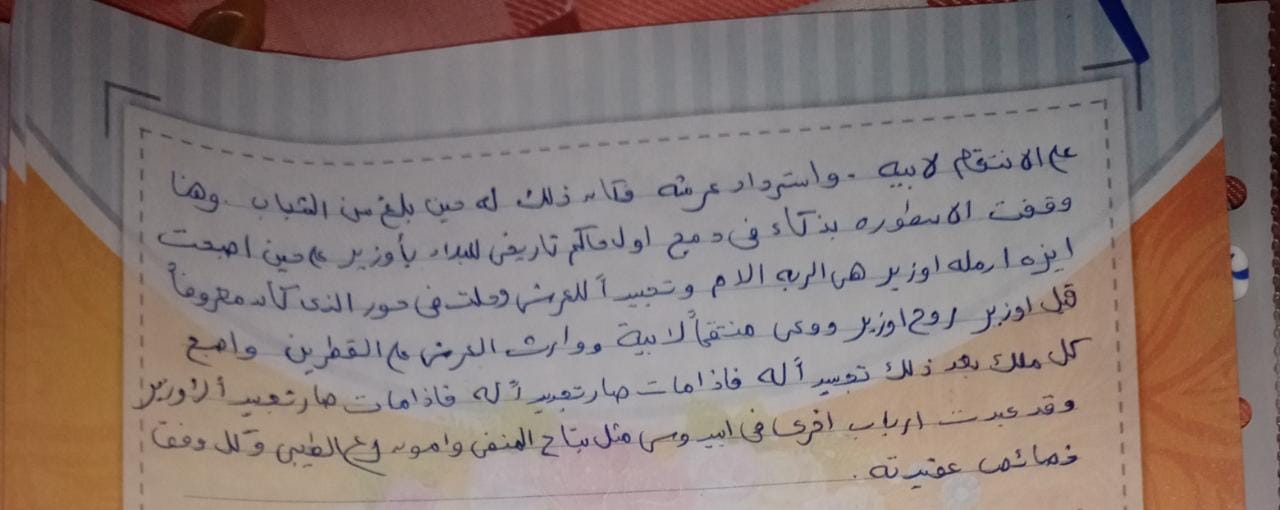 على الانتقام لابيه . واسترداد عرشه فكان ذلك له حين بلغ سن الشباب . وهنا
وقفت الاسطوره بذكاء فى دمج اول حاكم تاريخى للبلاد بأوزير على حين اصبحت
ايزه ارمله اوزير هى الربه الام وتجسيداً للعرش وحلت فى حور الذى كان معروفاً
قبل اوزير روح اوزير ووعى منتقماً لابية ووارث العرش على القطرين واصبح
كل ملك بعد ذلك تجسيداً له فاذا مات صار تجسيداً له فاذا مات صار تجسيداً لأوزير
وقد عبدت ارباب اخرى فى ابيدوس مثل بتاح المنفى وامون رع الطيبى وكل وفق
خصائص عقيدته .